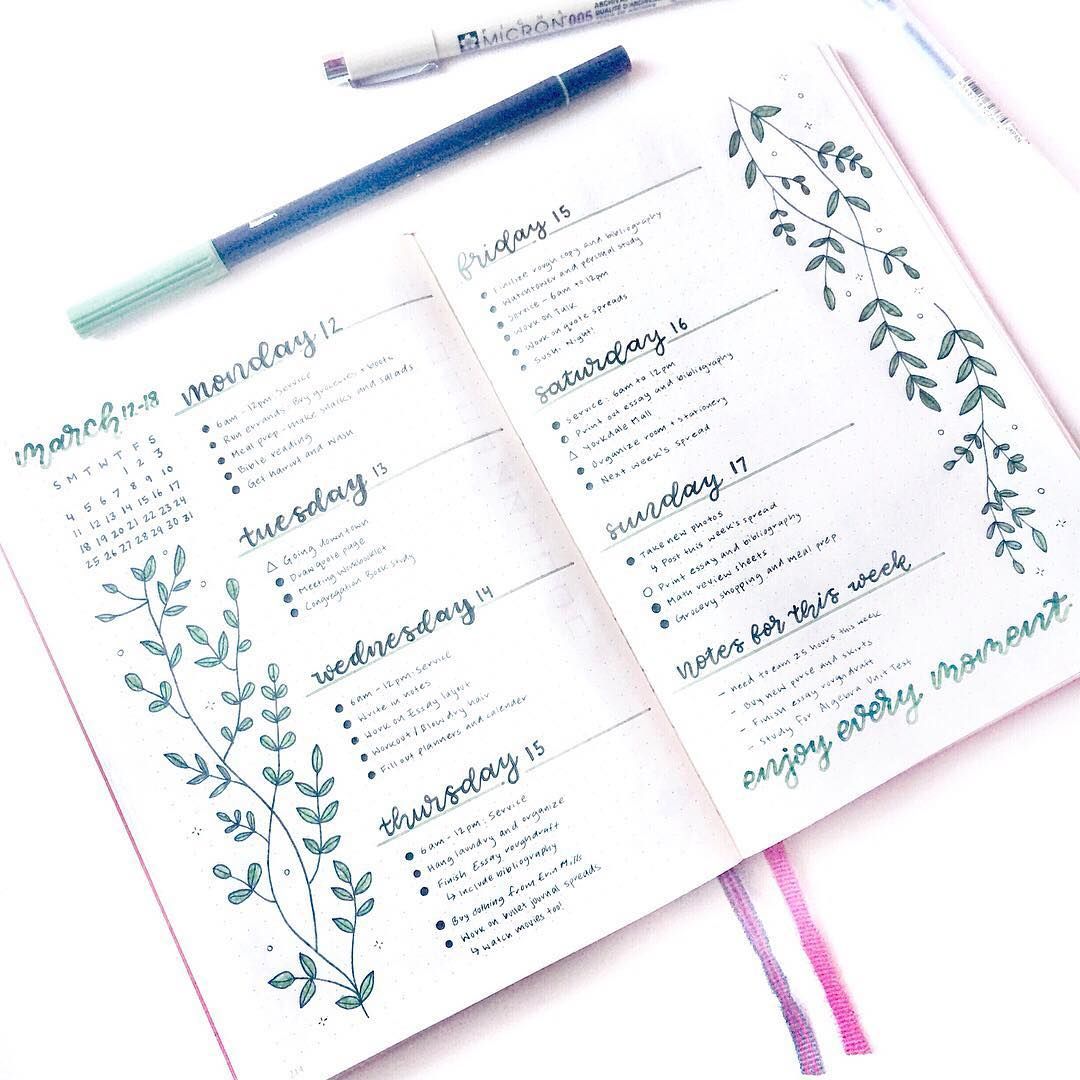 SIGMA MICRON 005
ARCHIVAL
QUALITÉ D'ARCHIVES
JAPAN
march 12-18
S M T W T F S
1 2 3
4 5 6 7 8 9 10
11 12 13 14 15 16 17
18 19 20 21 22 23 24
25 26 27 28 29 30 31
monday 12
6am - 12pm: Service
Run errands - Buy groceries + boots
Meal prep - Make snacks and salads
Bible reading
Get haircut and wash
tuesday 13
Going downtown
Draw quote page
Meeting Workbooklet
Congregation Book Study
wednesday 14
6am - 12pm: Service
Write in notes
Work on Essay layout
Workout / Blowdry hair
Fill out planners and calender
thursday 15
6am - 12pm: Service
Hang laundry and organize
Finish Essay roughdraft
↳ Include bibliography
Buy clothing from Erin Mills
Work on bullet journal spreads
↳ Watch movies too!
friday 15
Finalize rough copy and bibliography
Watchtower and personal study
Service - 6am to 12pm
Work on Talk
Work on quote spreads
Sushi Night!
saturday 16
Service: 6am to 12pm
Print out essay and bibliography
Yorkdale Mall
Organize room + stationery
Next week's spread
sunday 17
Take new photos
↳ Post this week's spread
Print essay and bibliography
Math review sheets
Grocery shopping and meal prep
notes for this week
- need to earn 25 hours this week
- Buy new purse and skirts
- Finish essay roughdraft
- Study For Algebra Unit Test
enjoy every moment